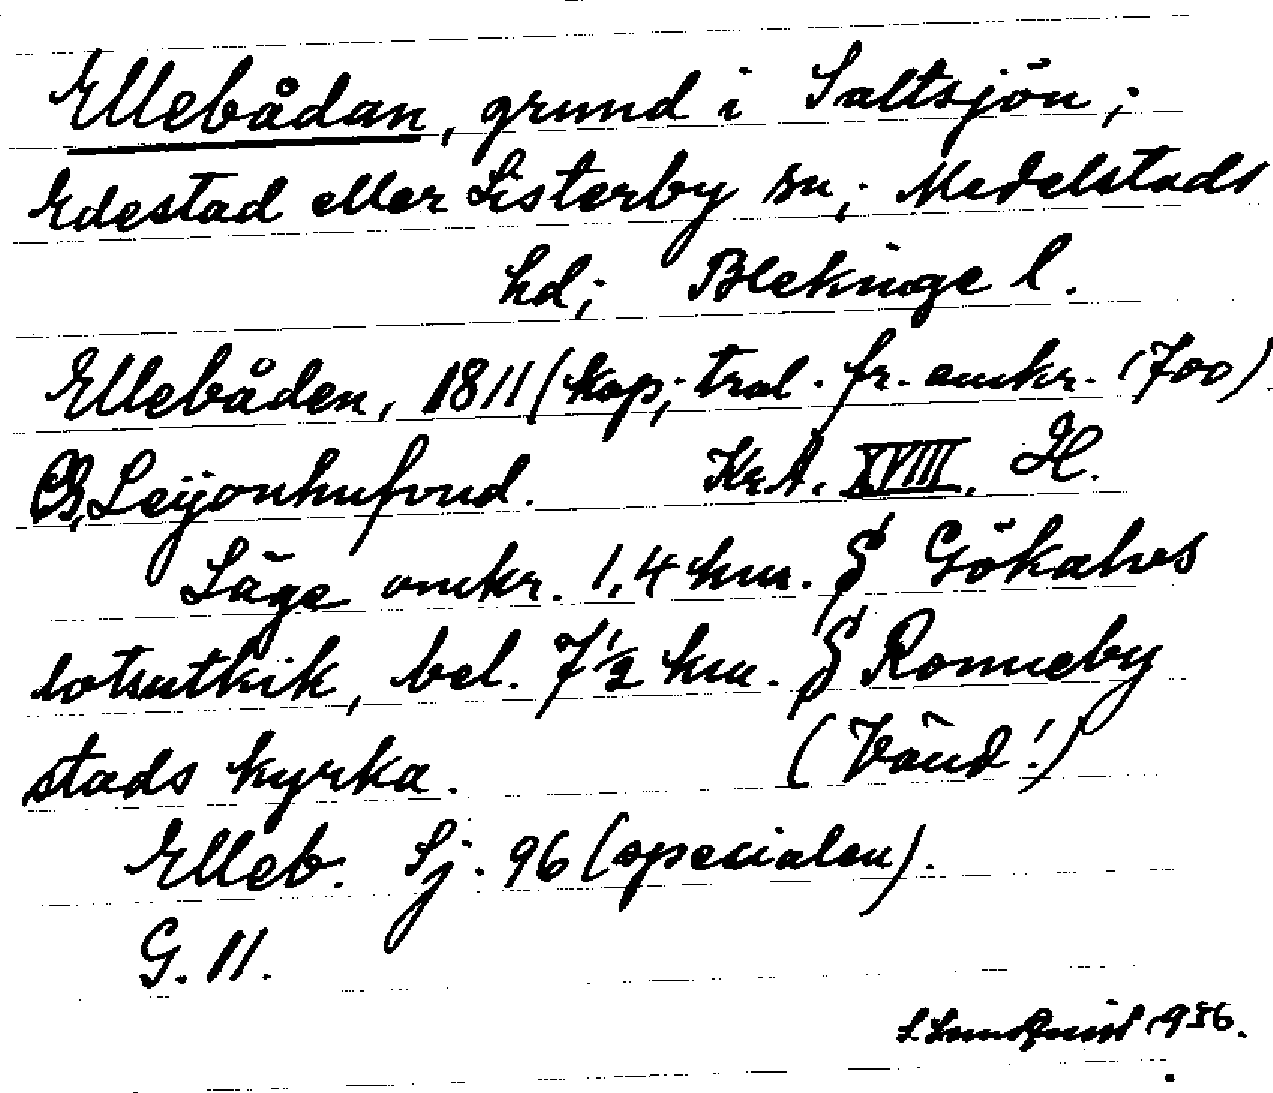 Ellebådan, grund i Saltsjön;
Edestad eller Listerby sn; Medelstads
hd; Blekinge l.
Ellebåden, 1811 (kop; tral. fr. omkr. 1700)
B. Leijonhufvud. KrA. XVIII. H.
Läge omkr. 1,4 km. S Gökalvs
lotsutkik, bel. 7½ km. S Ronneby
stads kyrka. (Vänd!)
Elleb. Sj. 96 (specialen).
G. 11.
S. Lundquist 1936.